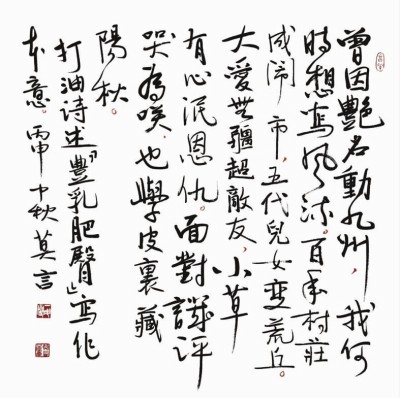 曾因艷名動九州，我何
時想寫風流。百年村莊
成鬧市，五代兒女變荒丘。
大愛無疆超敵友，小草
有心泯恩仇。面對譏評
哭為咲，也學皮裏藏
陽秋。
打油诗述「豐乳肥臀」寫作
本意。丙申中秋 莫言